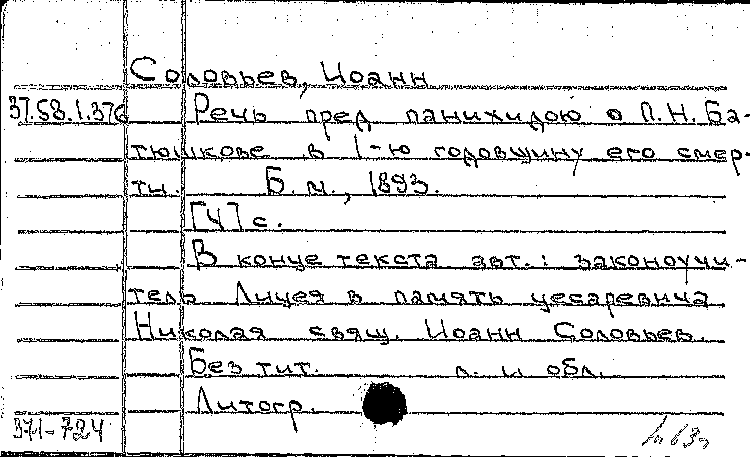 Соловьев, Иоанн
37.58.1.376 Речь пред панихидою о П.Н. Ба-
тюшкове в 1-ю годовщину его смер-
ти. Б.м., 1893.
[4] с.
В конце текста авт.: законоучи-
тель Лицея в память цесаревича
Николая свящ. Иоанн Соловьев.
Без тит. л. и обл.
Литогр.
371-724